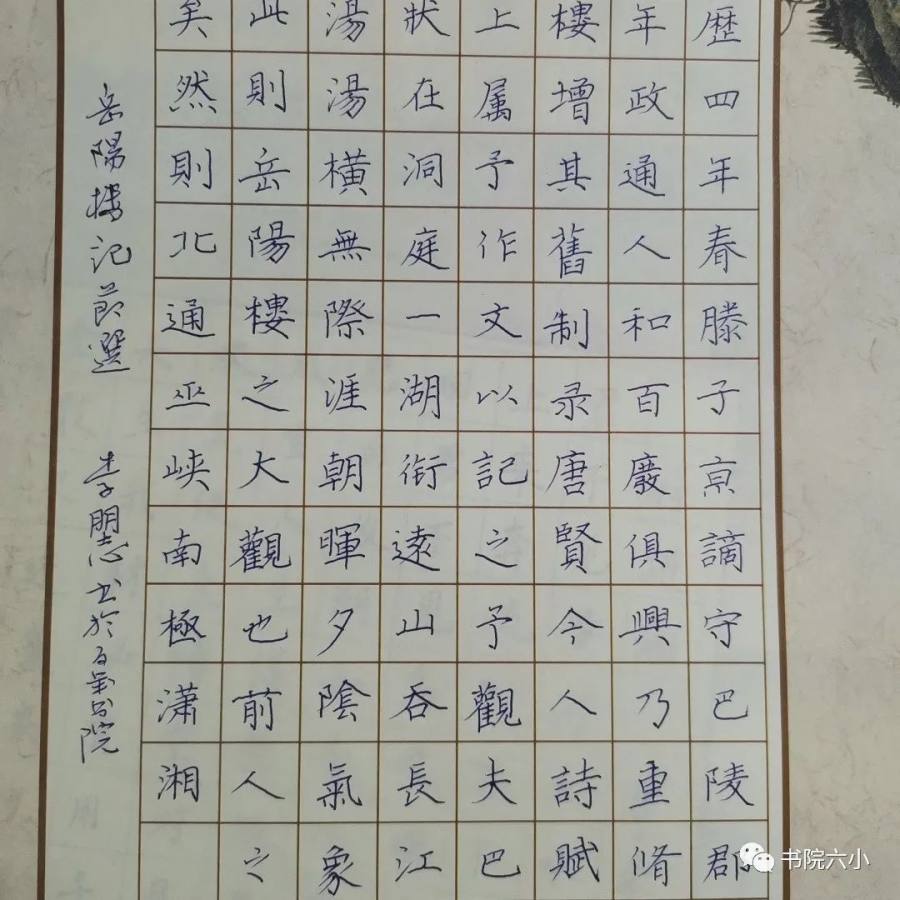 歷四年春滕子亰謫守巴陵郡
年政通人和百廢俱興乃重脩
樓增其舊制录唐賢今人詩賦
上属予作文以記之予觀夫巴
狀在洞庭一湖銜遠山吞長江
湯湯橫無際涯朝暉夕陰氣象
此則岳陽樓之大觀也前人之
矣然則北通巫峡南極潇湘
岳陽樓记節選
李书於书院
书院六小